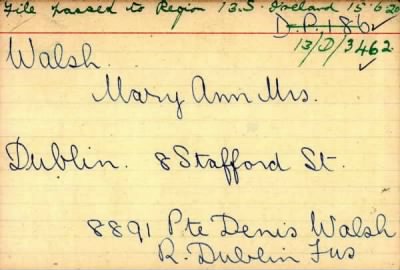 File passed to Region 13.S. Ireland 15.6.20
D.P. 186
13/D/3462
Walsh.
Mary Ann Mrs.
Dublin. 8 Stafford St.
8891 Pte Denis Walsh
R. Dublin Fus